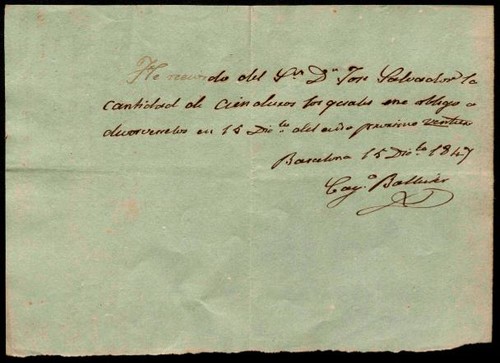 He recivido del Sr. Dn. Jose Salvador la
cantidad de cien duros los quales me obligo a
devolverselos en 15 Dicbe. del año proximo
Barcelona 15 Dicbe. 1847
Cayo. Ballester